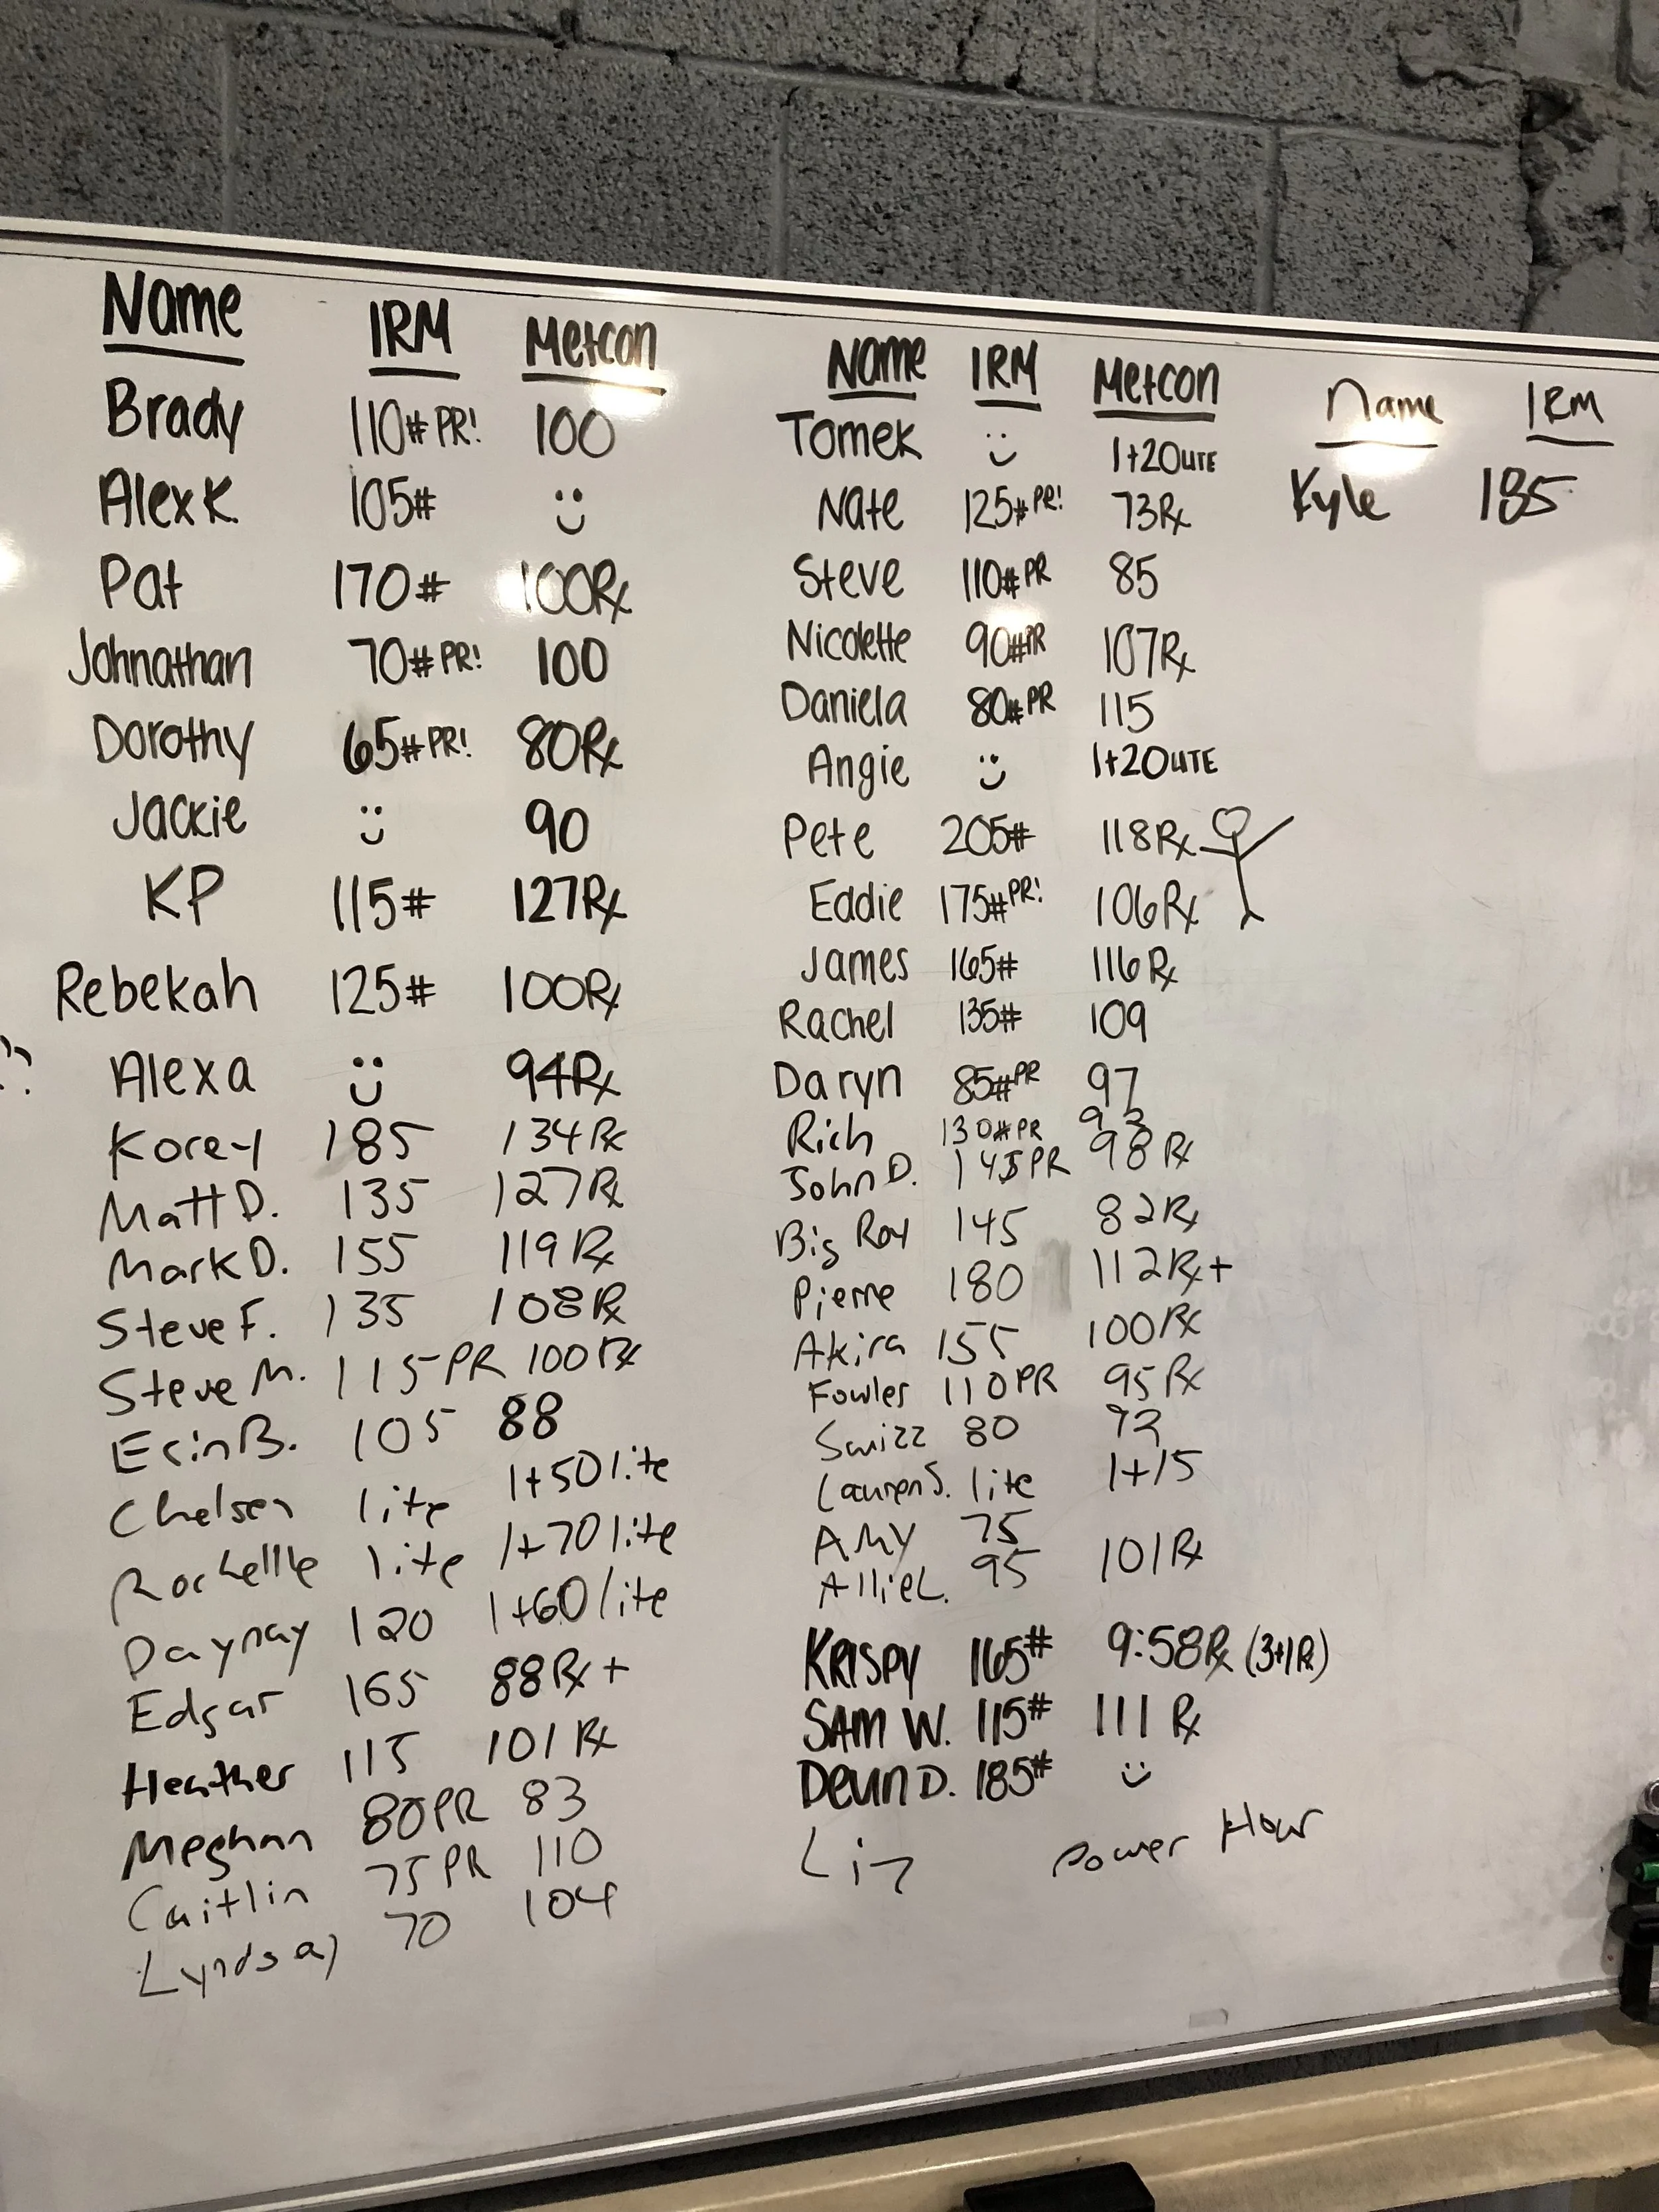 Name 1RM Metcon
Brady 110# PR! 100
Alex K. 105#
Pat 170# 100Rx
Johnathan 70# PR! 100
Dorothy 65# PR! 80Rx
Jackie 90
KP 115# 127Rx
Rebekah 125# 100Rx
Alexa 94Rx
Korey 185 134Rx
Matt D. 135 127Rx
Mark D. 155 119Rx
Steve F. 135 108Rx
Steve M. 115 PR 100Rx
Erin B. 105 88
Chelsea lite 1+50 lite
Rochelle lite 1+70 lite
Daynay 120 1+60 lite
Edgar 165 88Rx+
Heather 115 101Rx
Meghan 80PR 83
Caitlin 75PR 110
Lyndsay 70 104
Name 1RM Metcon
Tomek 1+20 LITE
Nate 125# PR! 73Rx
Steve 110# PR 85
Nicolette 90# PR 107Rx
Daniela 80# PR 115
Angie 1+20 LITE
Pete 205# 118Rx
Eddie 175# PR! 106Rx
James 165# 116Rx
Rachel 135# 109
Daryn 85# PR 97
Rich 130# PR 93
John D. 145 PR 98Rx
Big Roy 145 82Rx
Pierre 180 112Rx+
Akira 155 100Rx
Fowler 110PR 95Rx
Swizz 80
Lauren S. lite 1+15
Amy 75
Allie L. 95 101Rx
KRISPY 165# 9:58Rx (3+1R)
SAM W. 115# 111 Rx
Devin D. 185#
Liz Power Hour
Name 1RM
Kyle 185